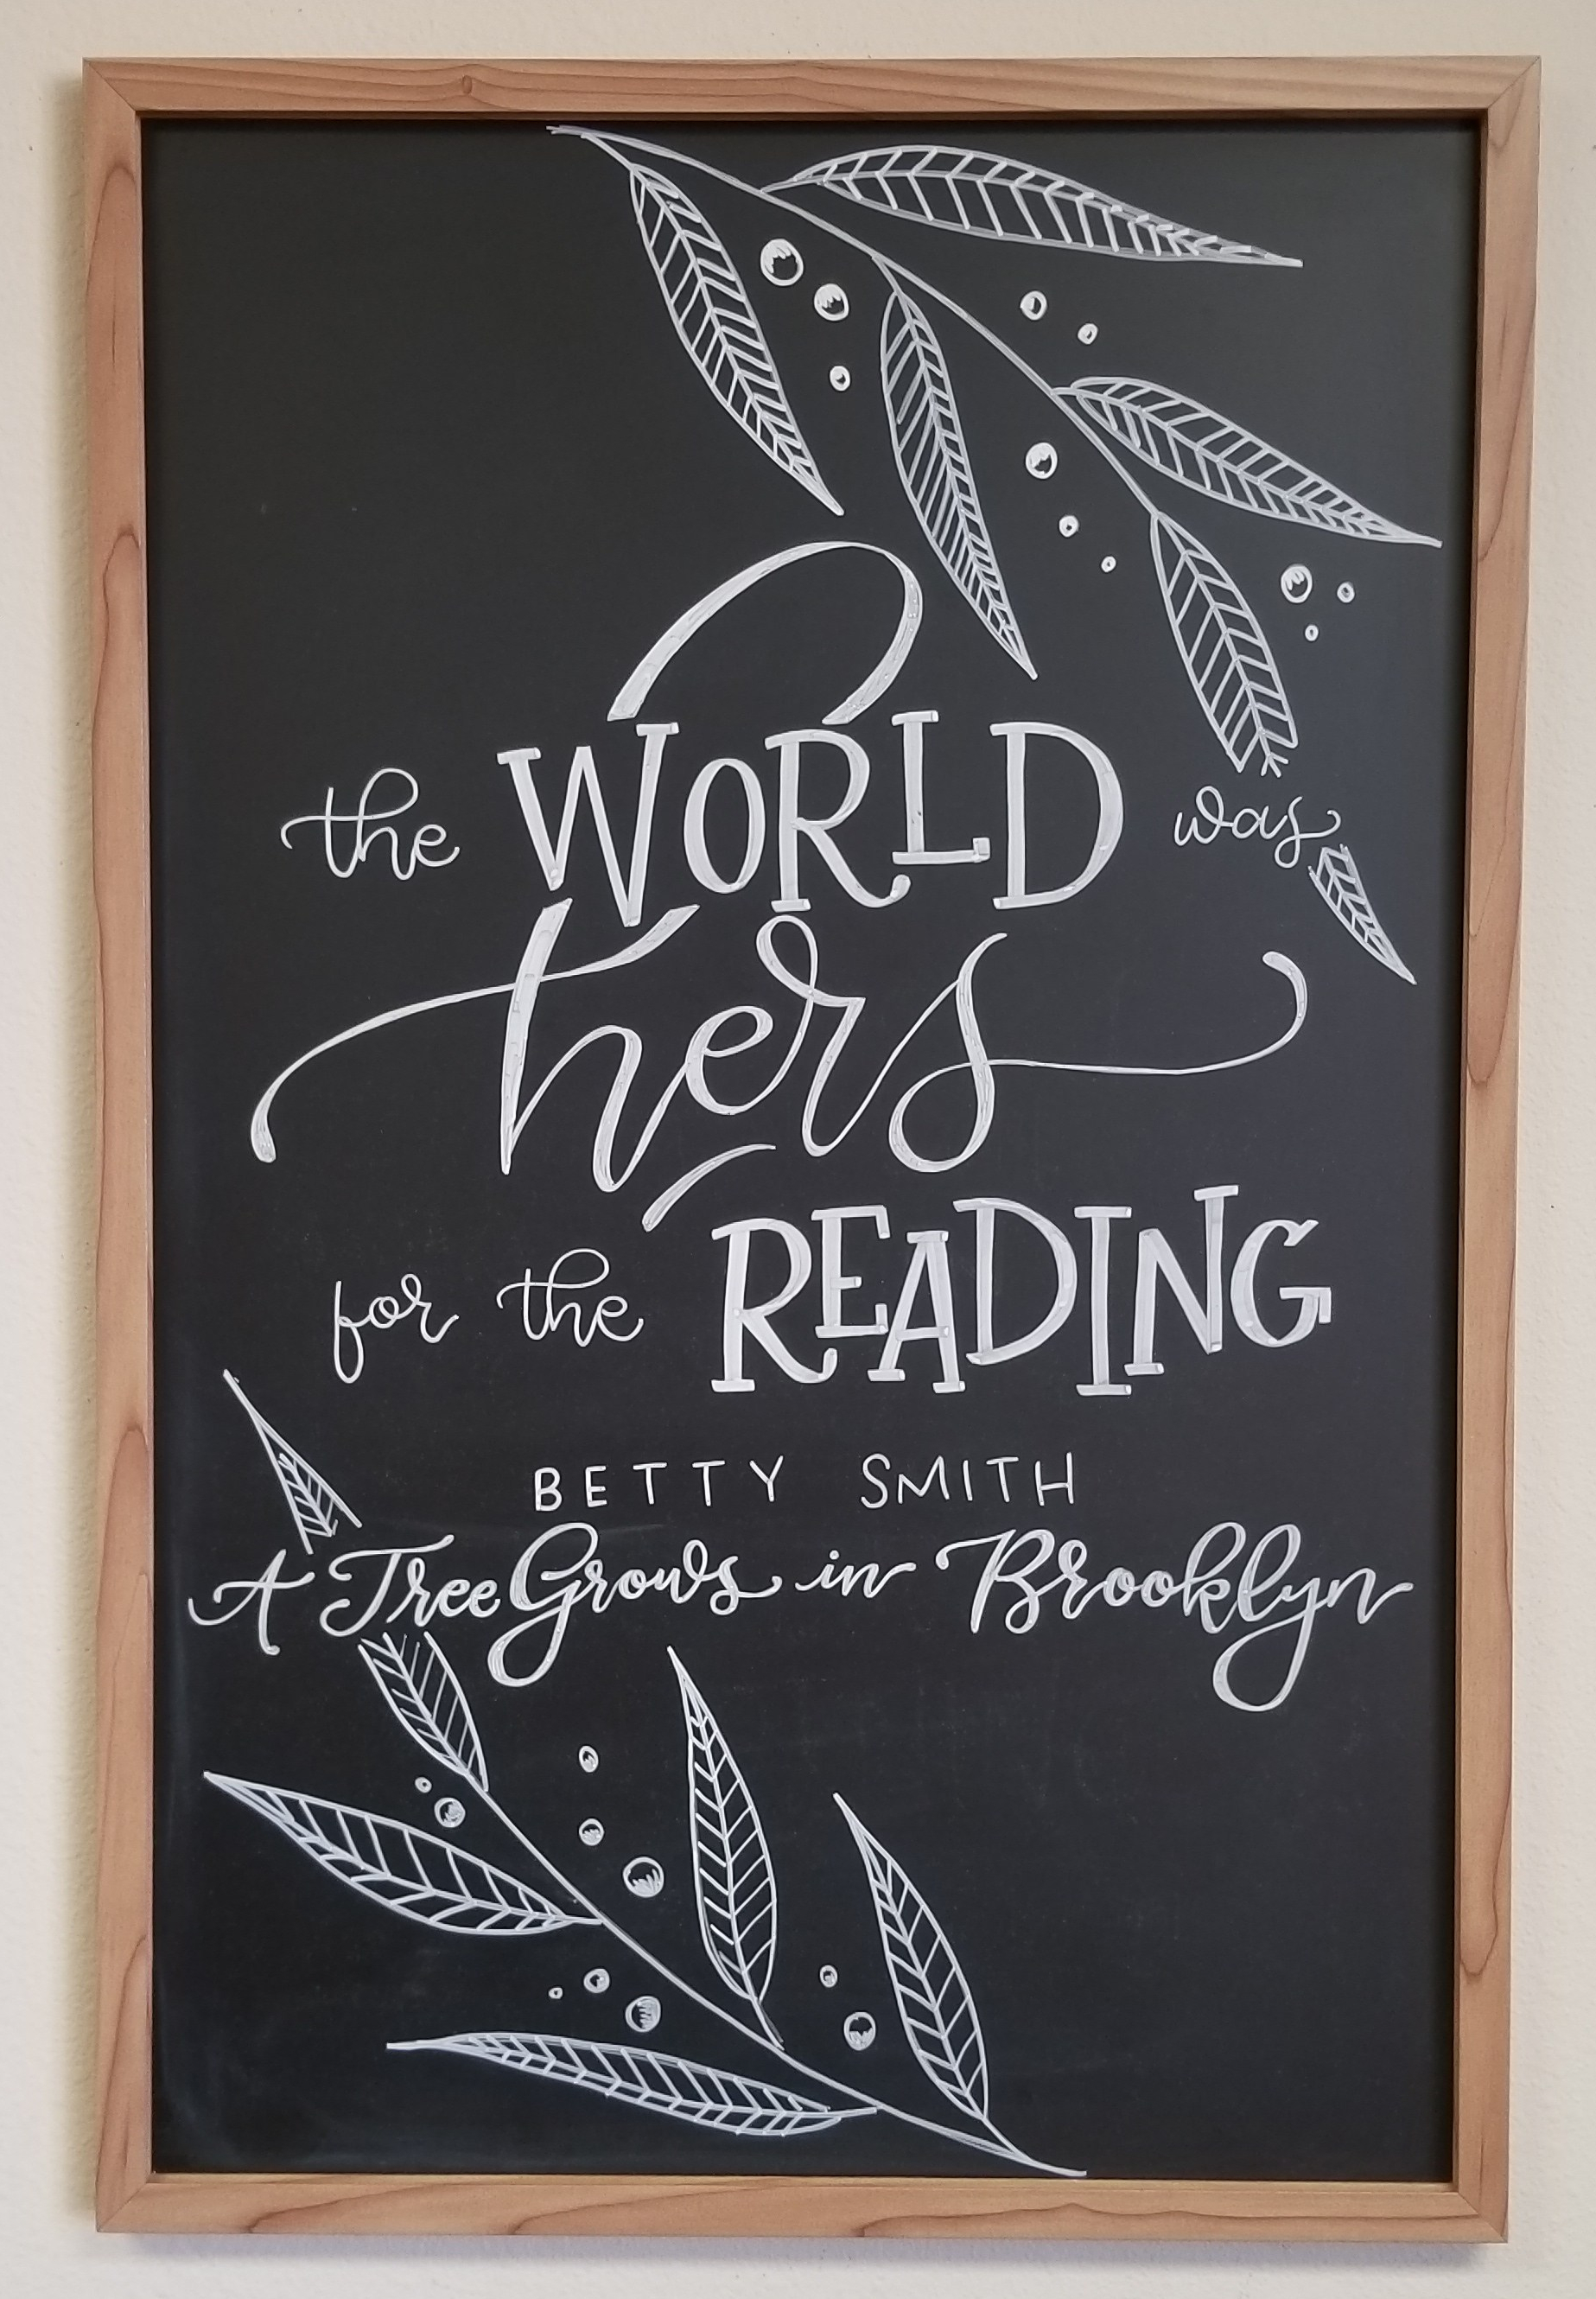 the WORLD was
hers
for the READING
BETTY SMITH
A Tree Grows in Brooklyn